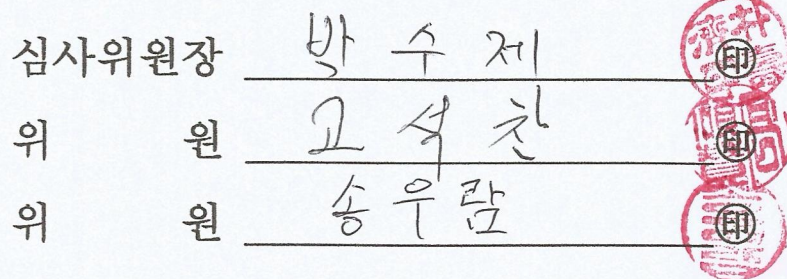 심사위원장 박 수 제 印
위 원 고 석 찬 印
위 원 송 우 람 印